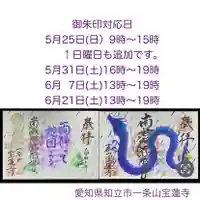 御朱印対応日
5月25日(日) 9時〜15時
1日曜日も追加です。
5月31日(土)16時〜19時
6月 7日(土)13時〜19時
6月21日(土)13時〜19時
奉拝
奉拝
愛知県知立市一条山宝蓮寺